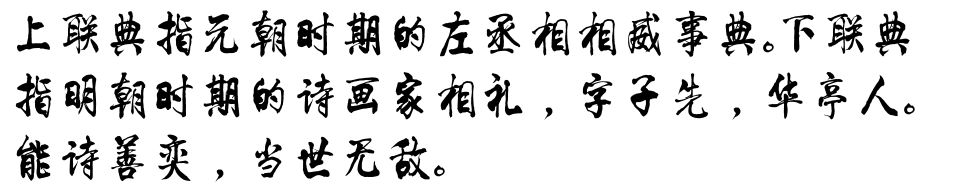 上联典指元朝时期的左丞相相威事典。下联典
指明朝时期的诗画家相礼，字子先，华亭人。
能诗善奕，当世无敌。